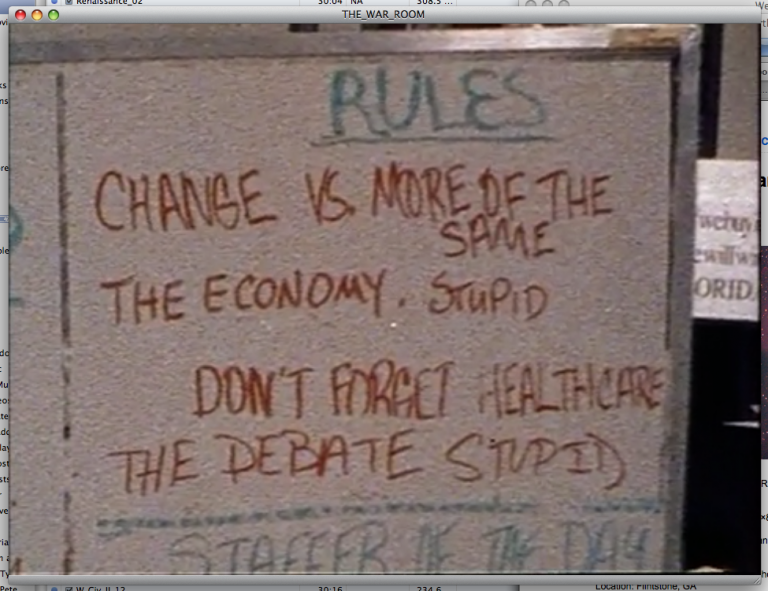 Renaissance_02 30:04 NA 308.5 ...
THE_WAR_ROOM
RULES
CHANGE VS. MORE OF THE
SAME
THE ECONOMY. STUPID
DON'T FORGET HEALTHCARE
THE DEBATE STUPID
STAFFER OF THE DAY
ORID
W_Civ_II_12 30:16 234.6
Location: Flintstone, GA